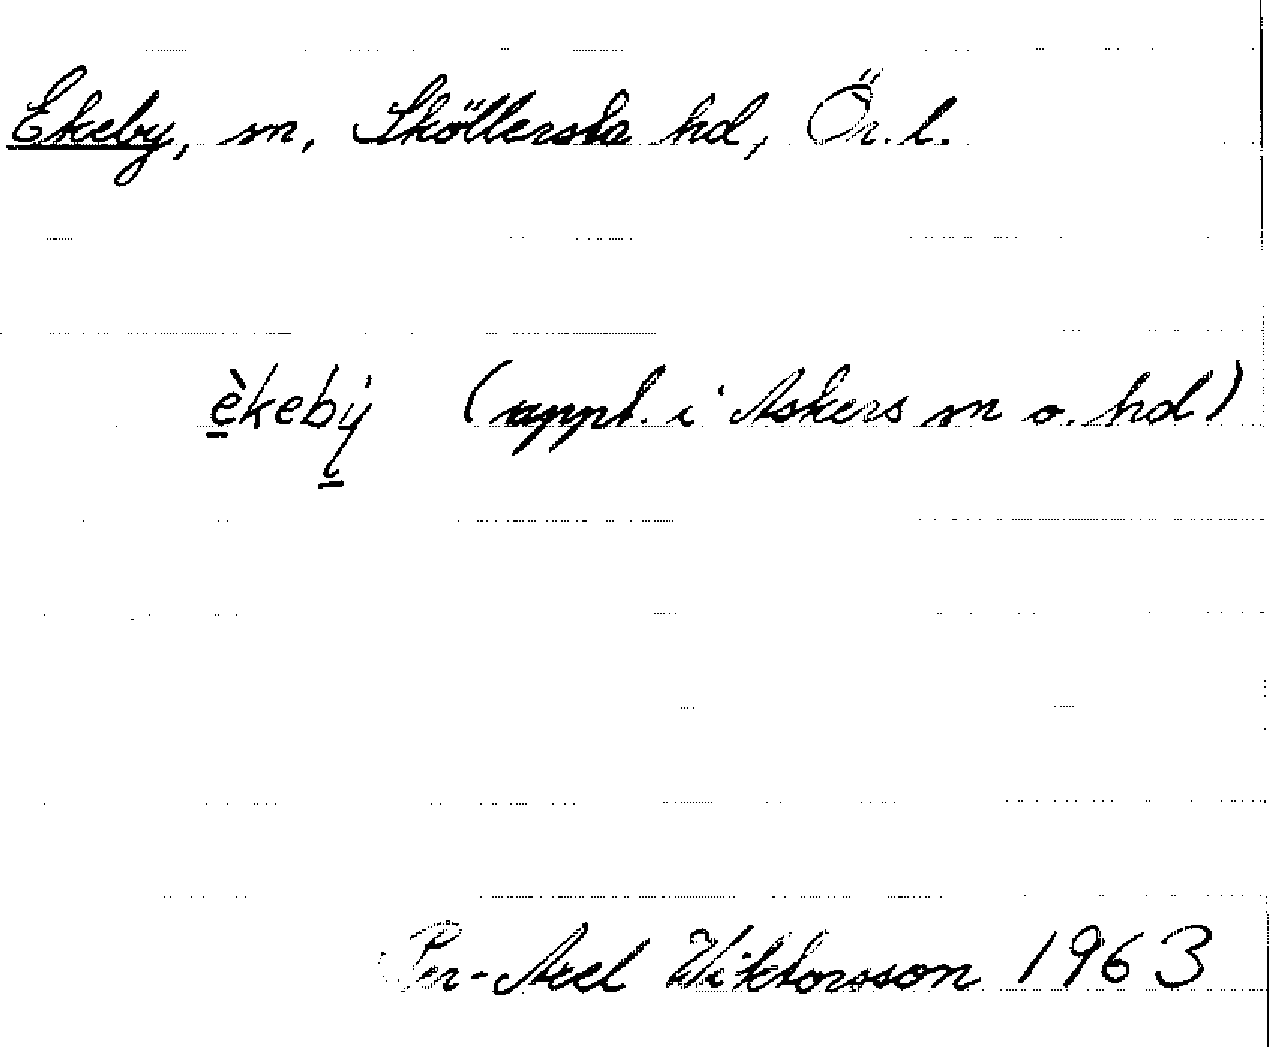 Ekeby, sn, Sköllersta hd, Ör. l.
èkebý (uppt. i Askers sn o. hd)
Per-Axel Wiktorsson 1963